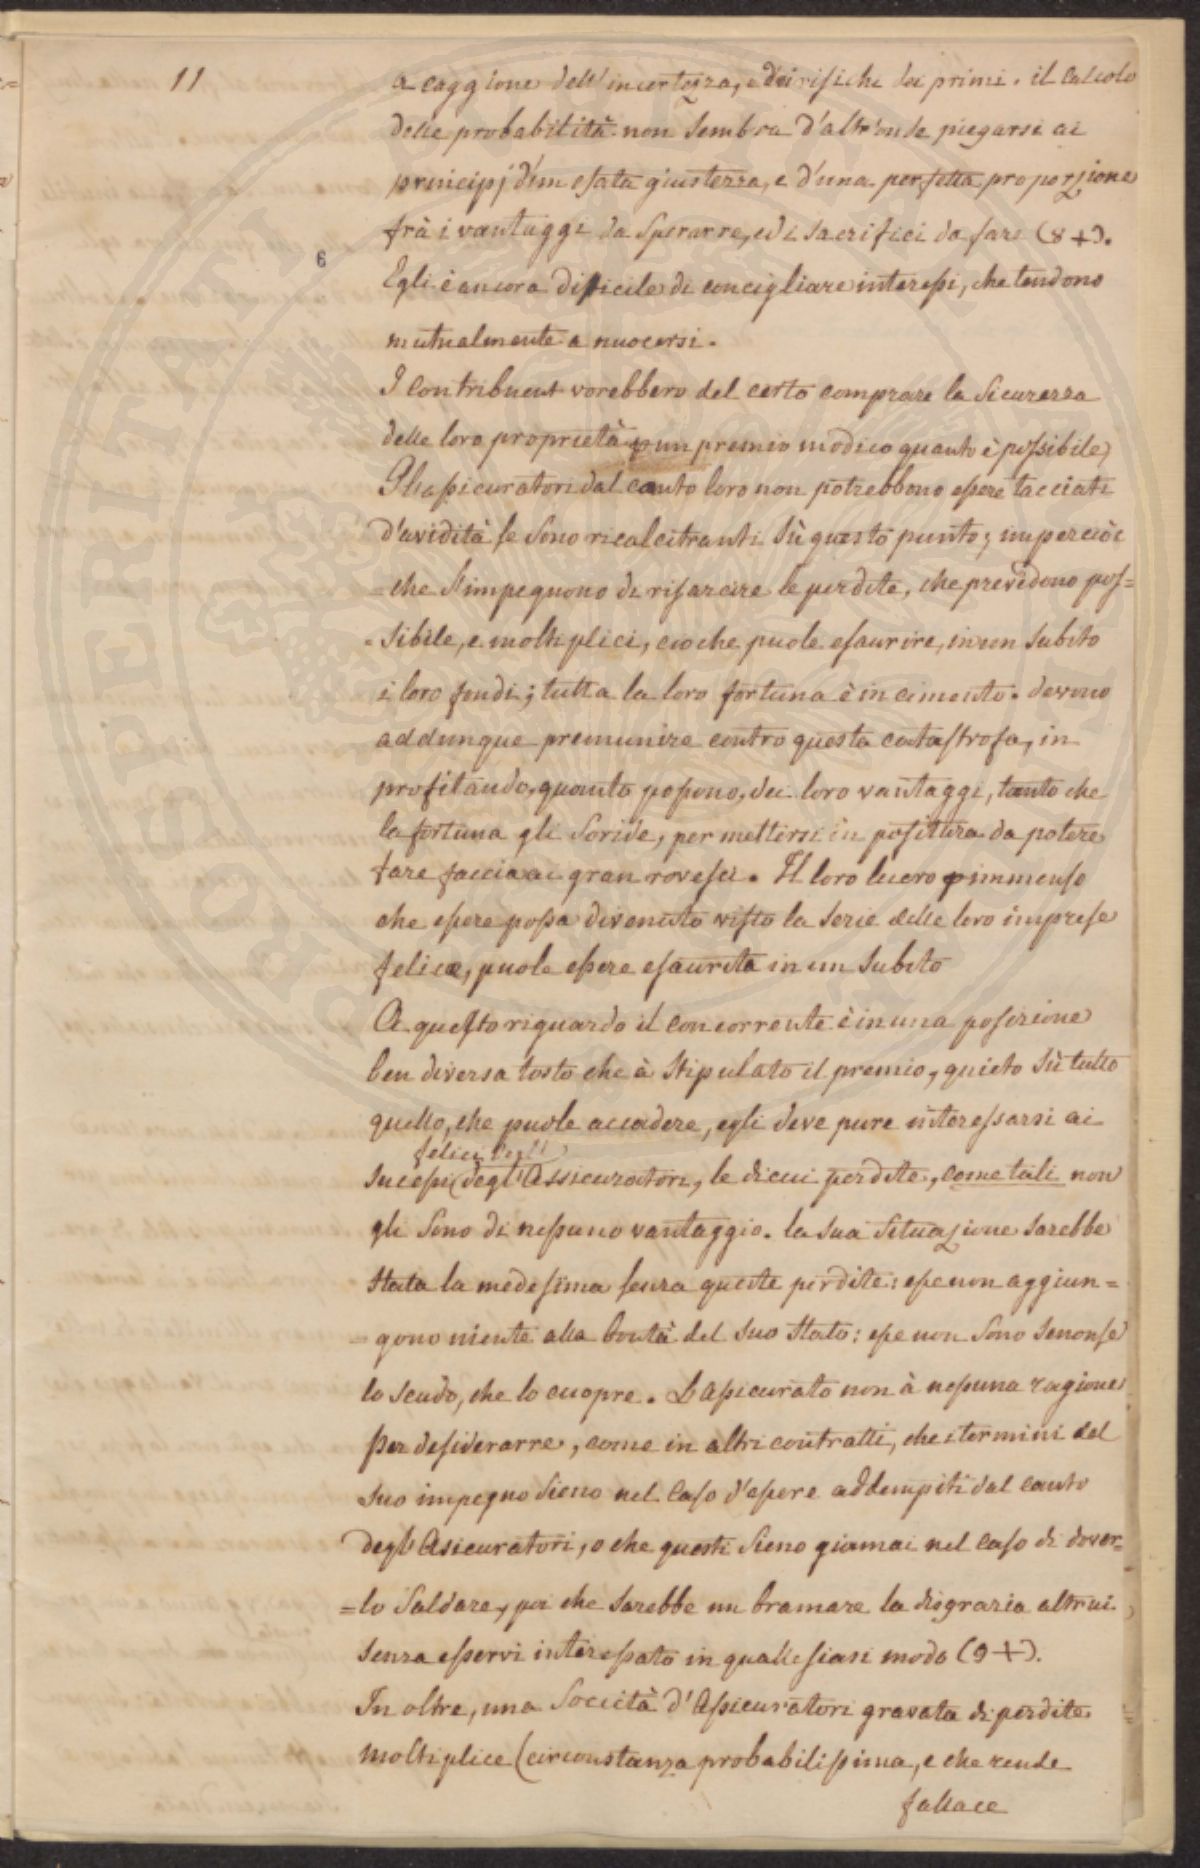 11
a caggione dell'incertezza, e dei risichi dei primi. il Calcolo
delle probabilità non sembra d'altr'onde piegarsi ai
principj d'un esata giustezza, e d'una perfetta proporzione
frà i vantaggi da sperarre, ed i sacrifici da fare (8+).
6
Egli è ancora difficile di concigliare interessi, che tendono
mutualmente a nuocersi.
I Contribuent vorebbero del certo comprare la Sicurezza
delle loro proprietà p un premio modico quanto è possibile,
Gl'assicuratori dal canto loro non potrebbono essere tacciati
d'avidità se sono ricalcitranti sù questo punto; imperciòc
=che s'impegnono di risarcire le perdite, che prevedono pos=
=sibile, e moltiplici, cioche puole esaurire, in un subito
i loro fondi; tutta la loro fortuna è in cimento. devono
addunque premunire contro questa catastrofa, in
profitando, quanto possono, dei loro vantaggi, tanto che
la fortuna gli soride, per mettirsi in positura da potere
fare faccia ai gran rovesci. Il loro lucro p immenso
che essere possa divenuto visto la serie delle loro imprese
felice, puole essere esaurita in un subito
A questo riguardo il concorrente è in una posizione
ben diversa tosto che à stipulato il premio, quieto sù tutto
quello, che puole accadere, egli deve pure interessarsi ai
felici degli
sucessi degl'Assicuratori, le di cui perdite, come tali non
gli sono di nessuno vantaggio. la sua situazione sarebbe
stata la medesima senza queste perdite: esse non aggiun=
=gono niente alla bontà del suo stato: esse non sono senonse
lo scudo, che lo cuopre. L'Assicurato non à nessuna ragione
per desiderarre, come in altri contratti, che i termini del
suo impegno sieno nel caso d'essere addempiti dal canto
degl'Asicuratori, o che questi sieno giamai nel caso di dover=
=lo saldare, poi che sarebbe un bramare la disgrazia altrui
senza esservi interessato in qualle siasi modo (9+).
In oltre, una Società d'Assicuratori gravata di perdite
moltiplice (circonstanza probabilissima, e che rende
fallace
PROSPERITATI PUBLICAE AUGENDAE